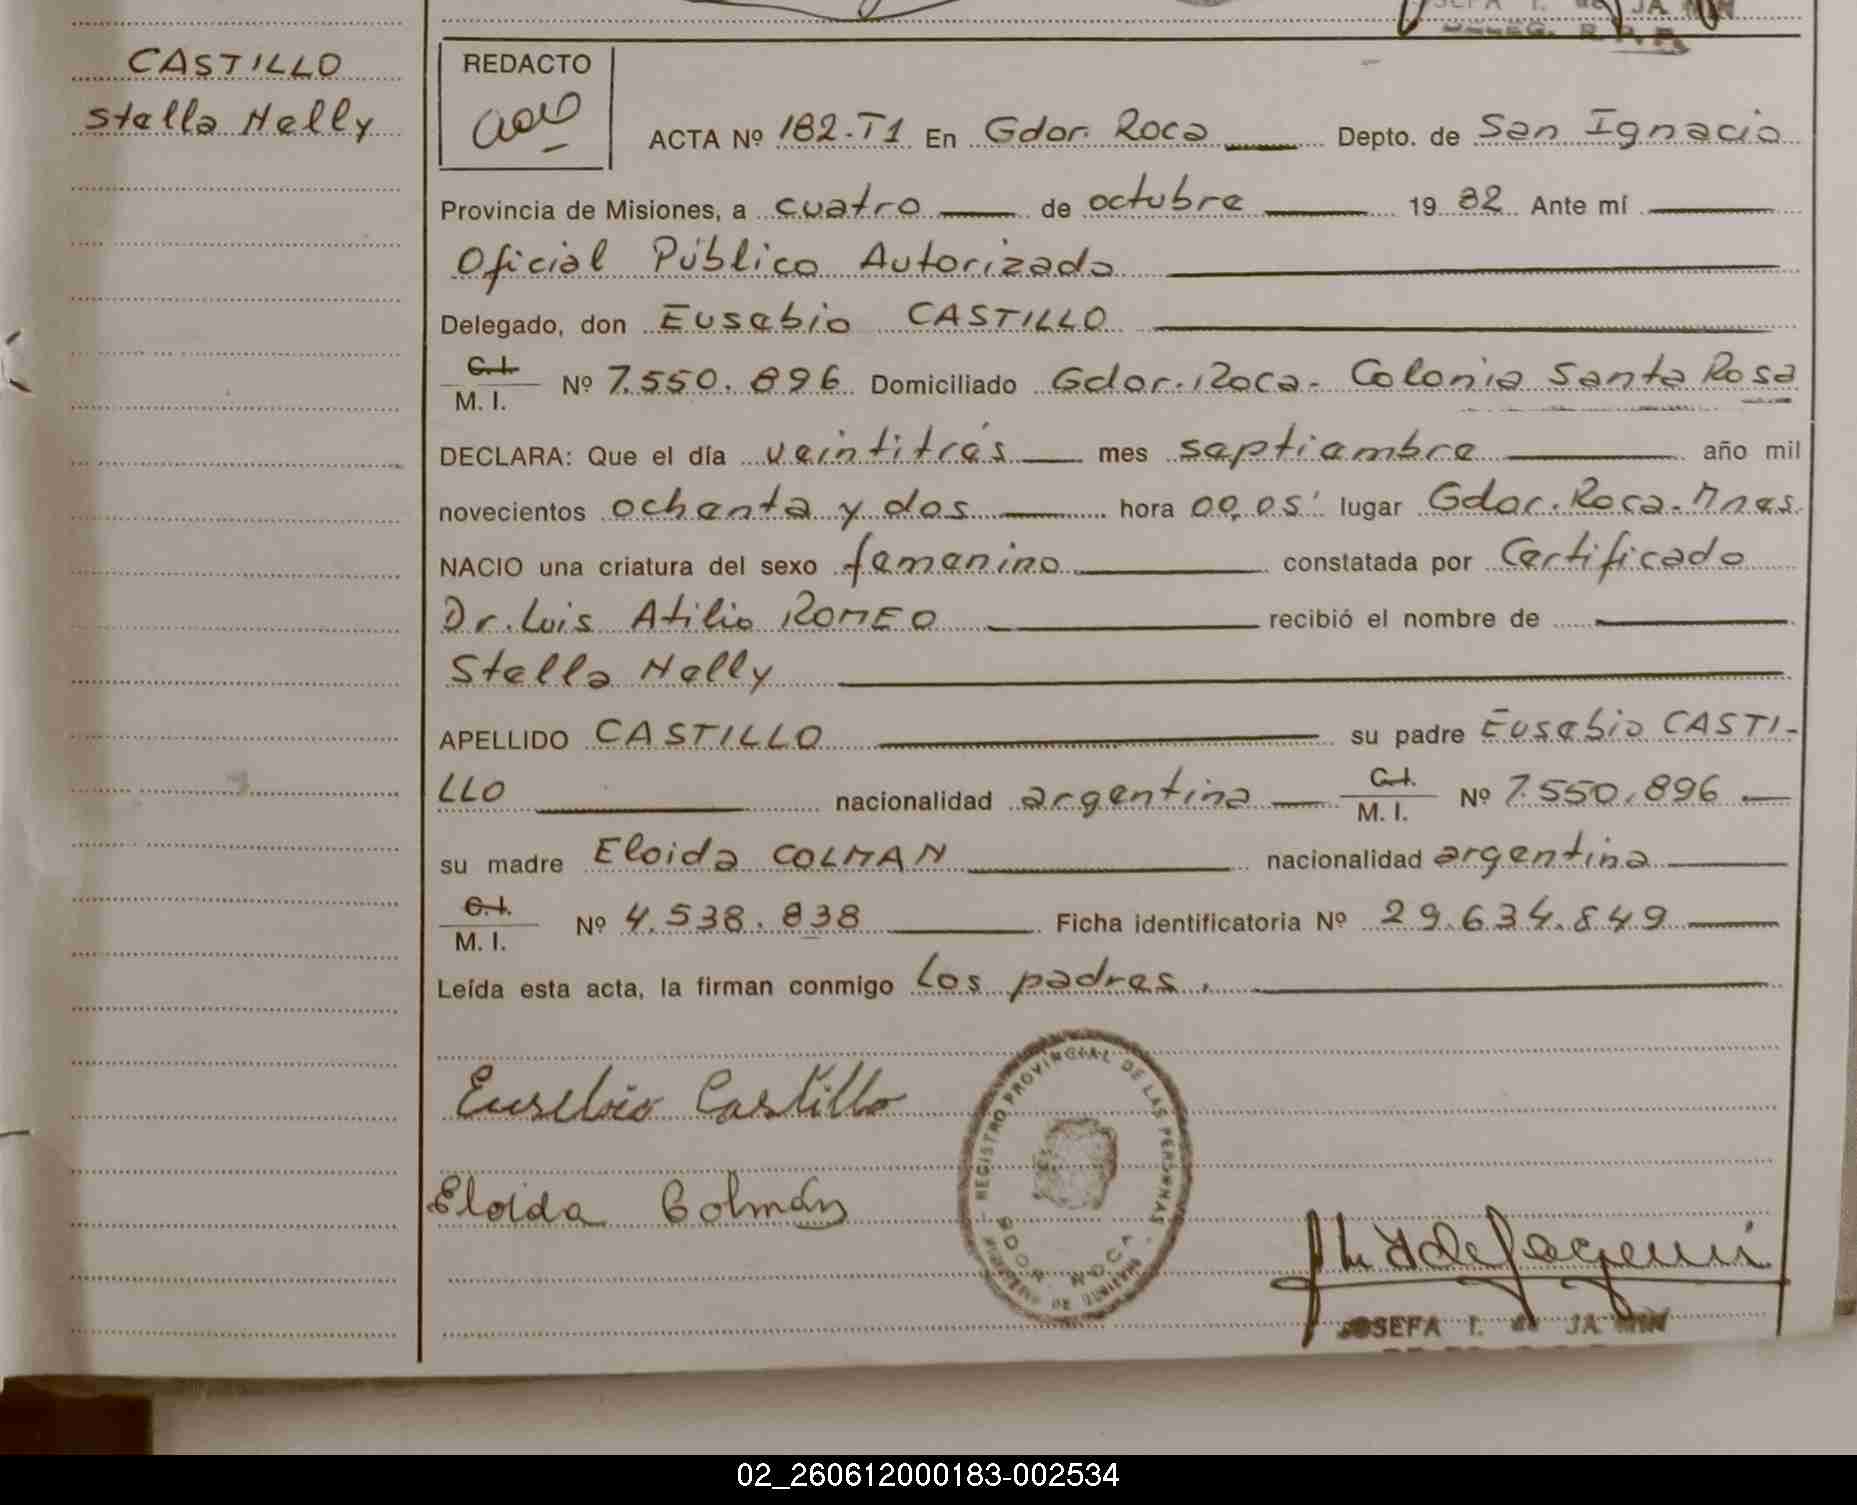 CASTILLO
Stella Nelly
REDACTO
ACTA Nº 182-T1 En Gdor. Roca Depto. de San Ignacio
Provincia de Misiones, a cuatro de octubre 19 82 Ante mí
Oficial Público Autorizado
Delegado, don Eusebio CASTILLO
C.I. M. I. Nº 7.550.896 Domiciliado Gdor. Roca- Colonia Santa Rosa
DECLARA: Que el día veintitrés mes septiembre año mil
novecientos ochenta y dos hora 00,05' lugar Gdor. Roca-Mnes.
NACIO una criatura del sexo femenino constatada por Certificado
Dr. Luis Atilio ROMEO recibió el nombre de
Stella Nelly
APELLIDO CASTILLO su padre Eusebio CASTI-
LLO nacionalidad argentina C.I. M. I. Nº 7.550.896
su madre Eloida COLMAN nacionalidad argentina
C.I. M. I. Nº 4.538.838 Ficha identificatoria Nº 29.634.849
Leída esta acta, la firman conmigo los padres.
Eusebio Castillo
REGISTRO PROVINCIAL DE LAS PERSONAS
Eloida Colmán
GDOR ROCA
JOSEFA I. de
02_260612000183-002534